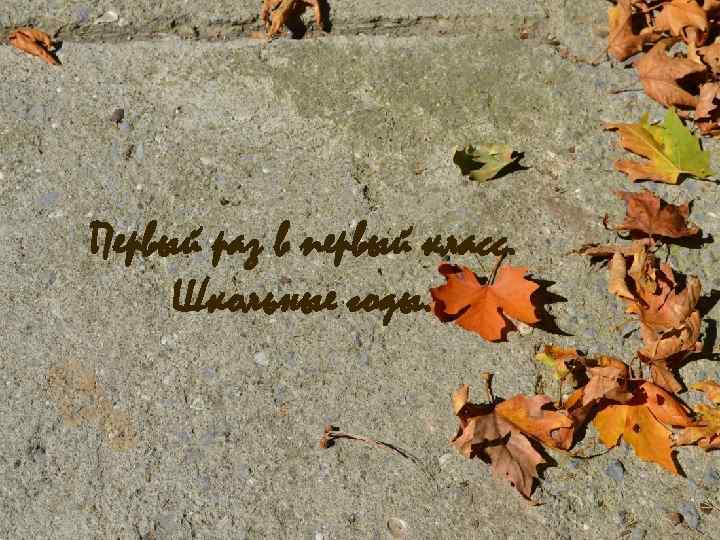 Первый раз в первый класс.
Школьные годы.